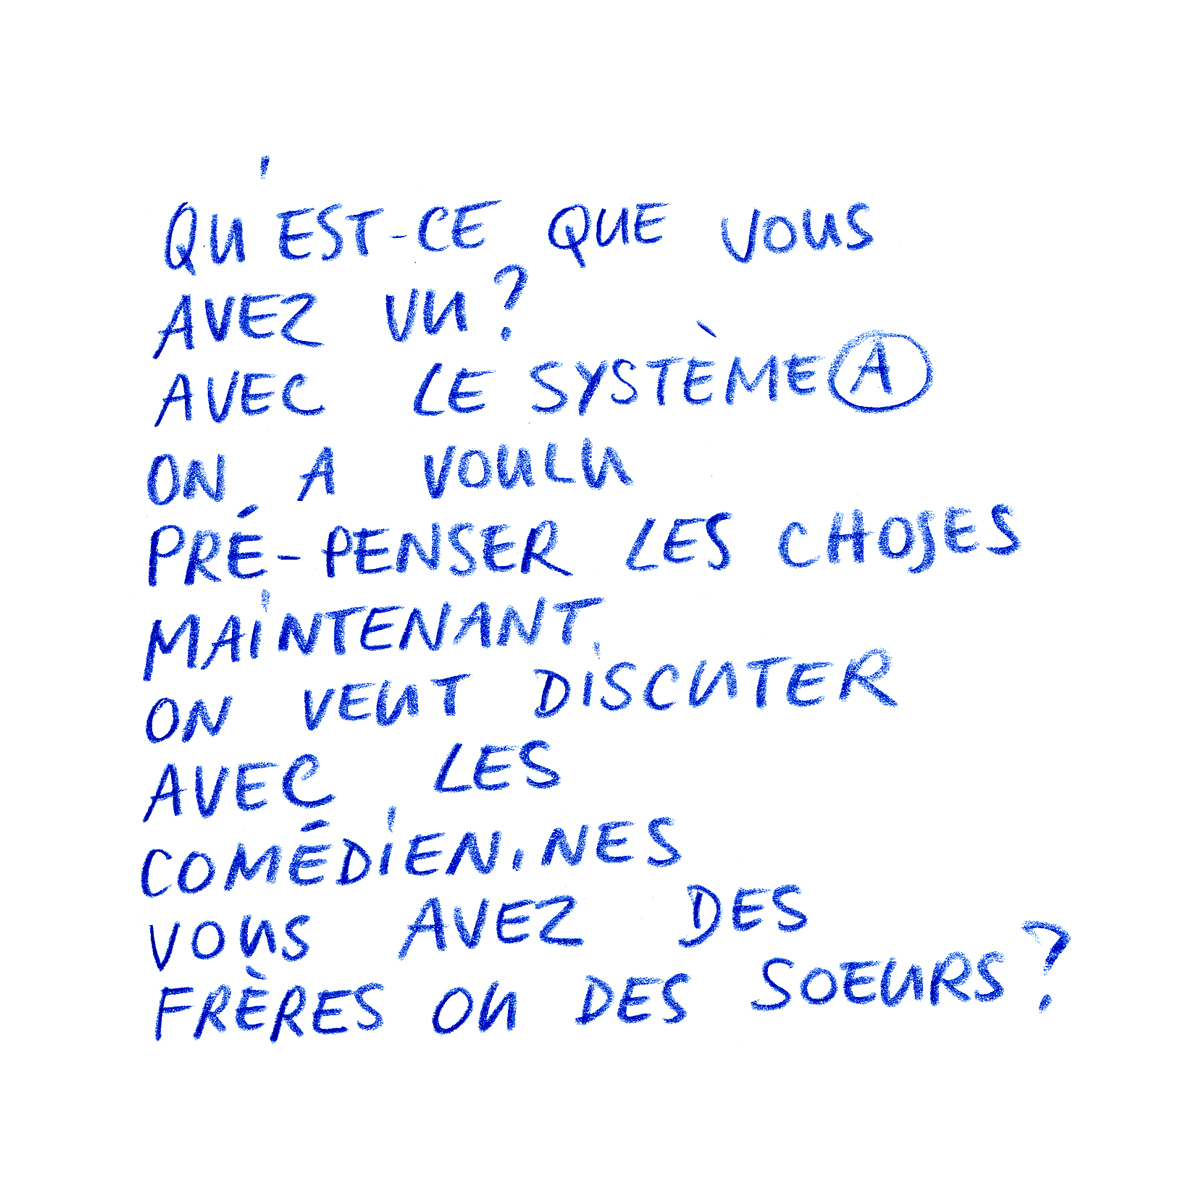 QU'EST-CE QUE VOUS
AVEZ VU?
AVEC LE SYSTÈME Ⓐ
ON A VOULU
PRÉ-PENSER LES CHOSES
MAINTENANT.
ON VEUT DISCUTER
AVEC LES
COMÉDIEN.NES
VOUS AVEZ DES
FRÈRES OU DES SOEURS?